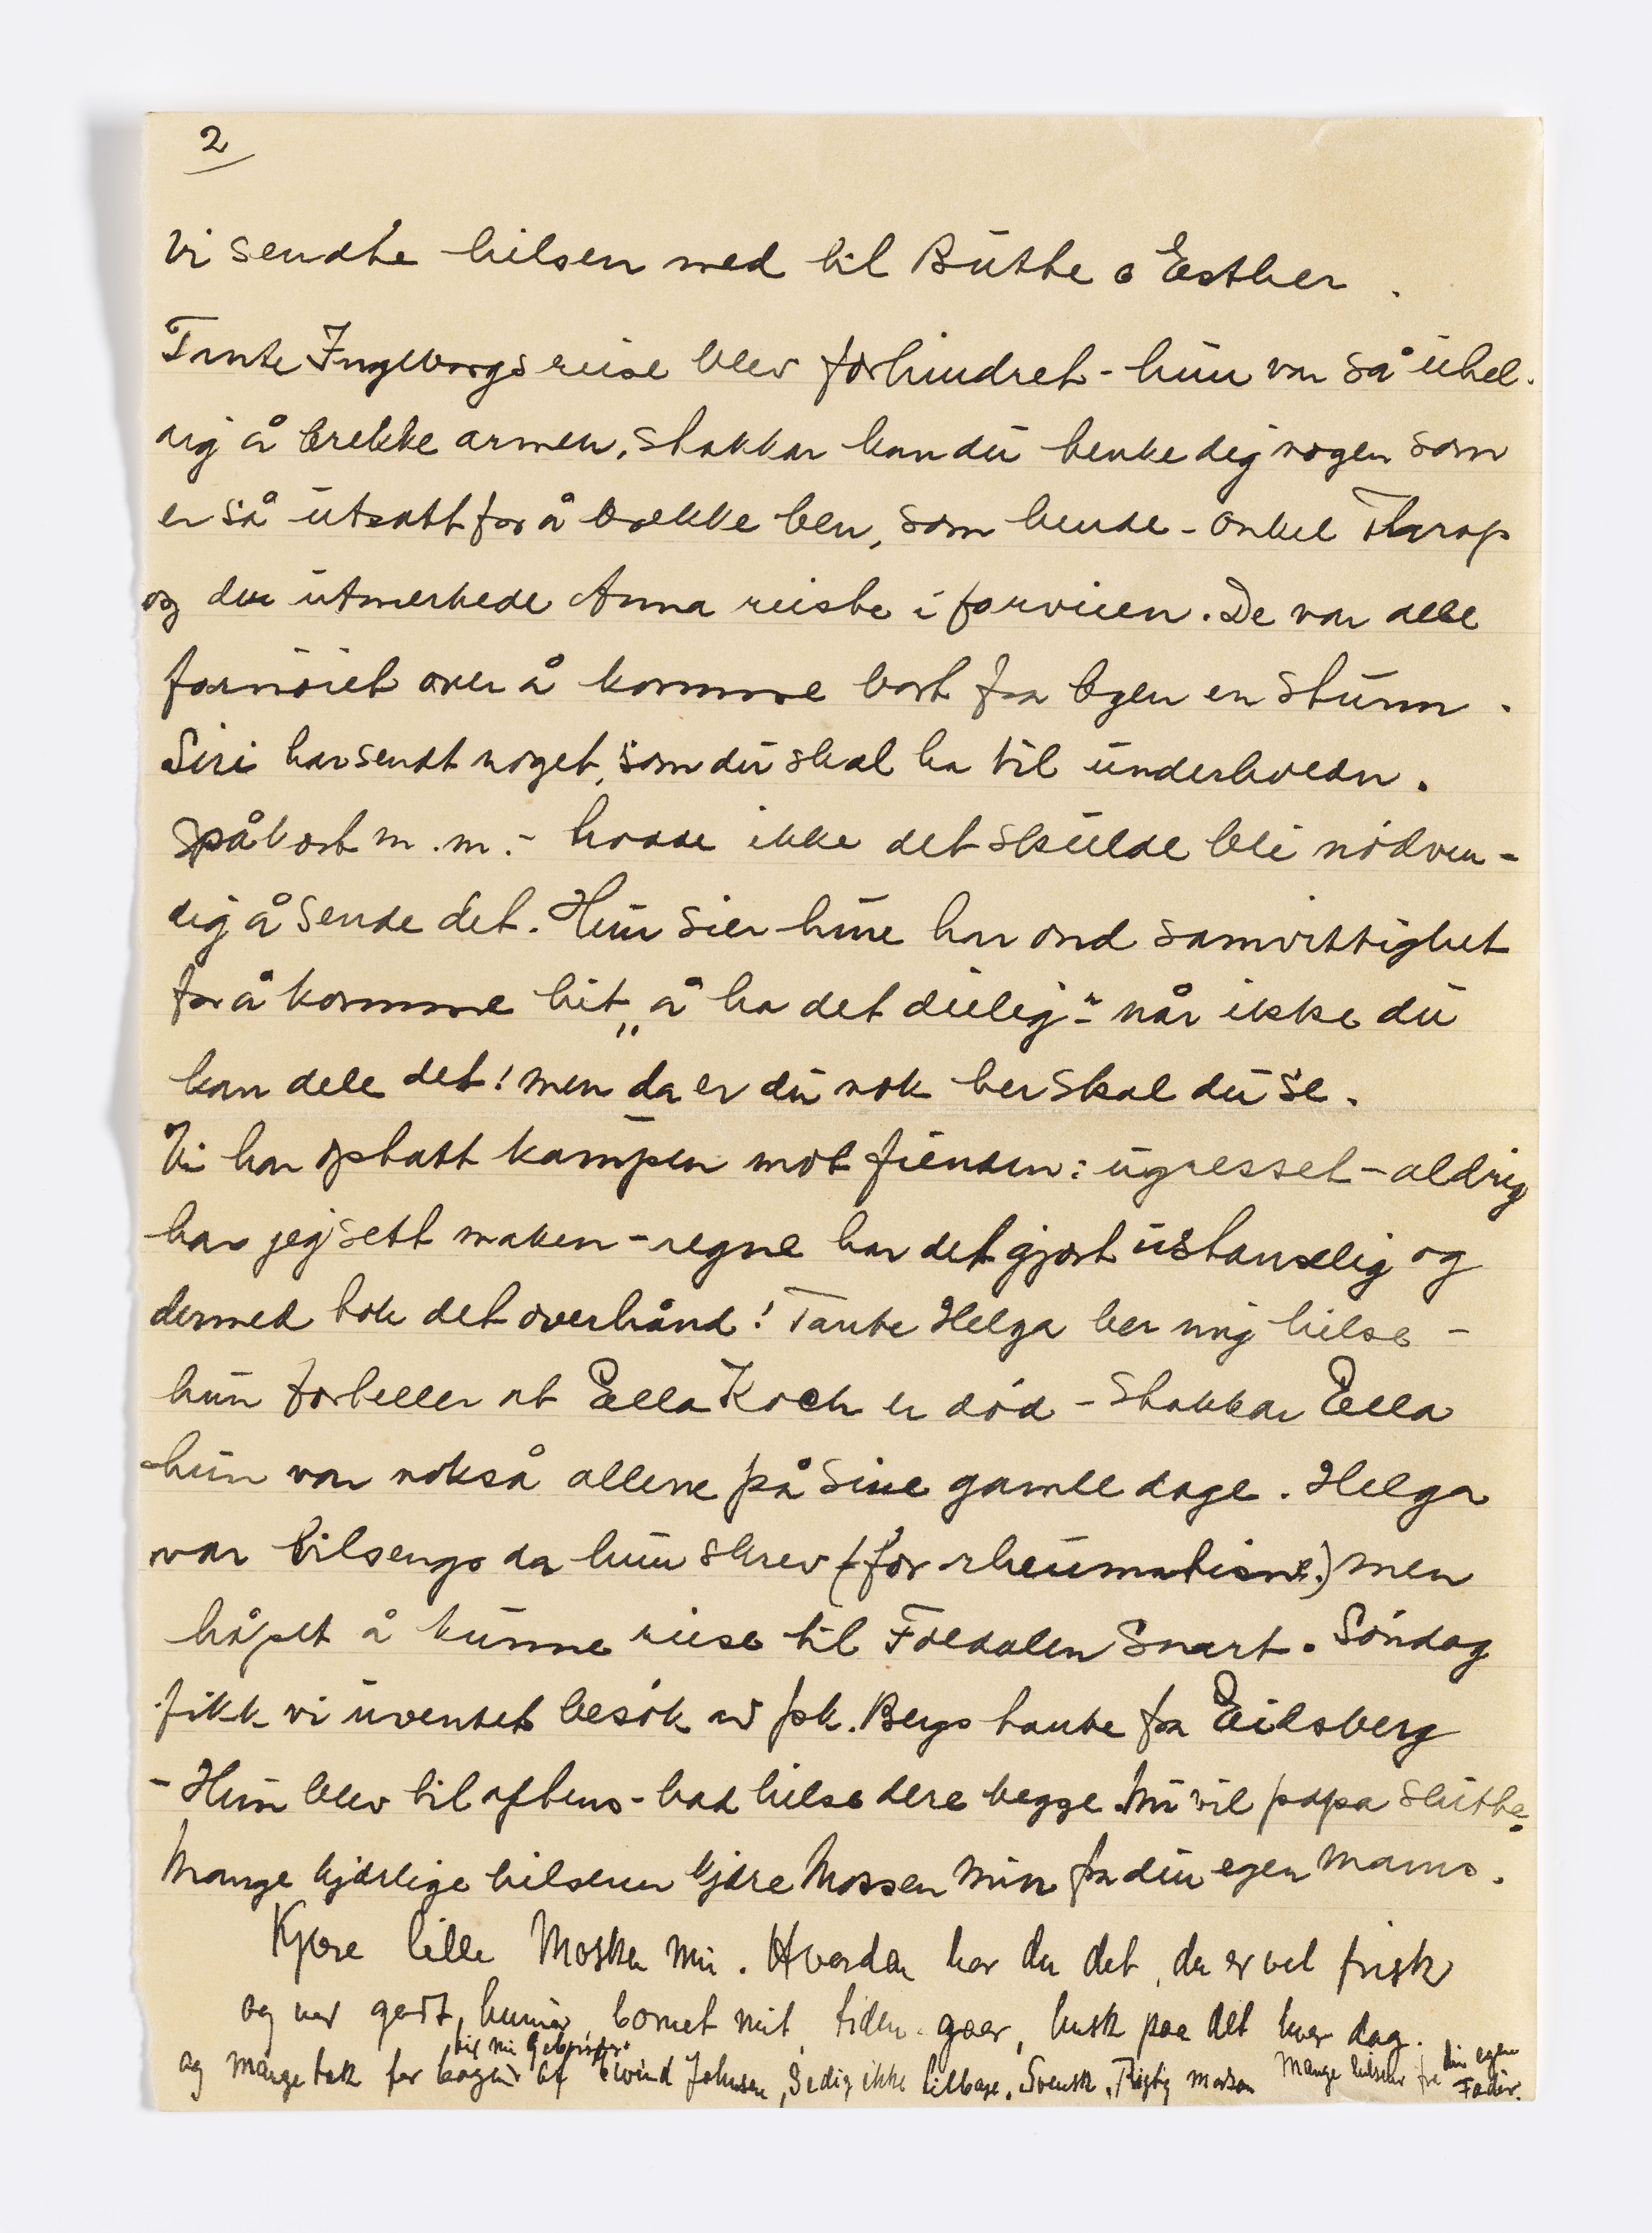 2
Vi sendte hilsen med til Butte o Esther.
Tante Ingeborgs reise blev forhindret - hun var så uhel-
dig å brekke armen, stakkar kan du tenke dig nogen som
er så utsatt for å brekke ben, som hende - Onkel Thrap
og den utmerkede Anna reiste i forveien. De var alle
fornøiet over å komme bort fra byen en stunn.
Siri har sendt noget, som du skal ha til underholdn.
Spåkort m.m. - hadde ikke det skulde bli nødven-
dig å sende det. Hun sier hun har ond samvittighet
for å komme hit „å ha det deilig“ - når ikke du
kan dele det! men da er du nok her skal du se.
Vi har optatt kampen mot fienden: ugresset - aldrig
har jeg sett maken - regne har det gjort ustanselig og
dermed tok det overhånd! Tante Helga ber mig hilse -
hun forteller at Ella Koch er død - Stakkar Ella
- hun var nokså allene på sine gamle dage. Helga
var tilsengs da hun skrev (for rheumatisme.) men
håpet å kunne reise til Foldalen snart. Søndag
fikk vi uventet besøk av frk. Bergs tante fra Eidsberg
- Hun blev til aftens - bad hilse dere begge. Nu vil papa slutte.
Mange kjærlige hilsener kjære Mossen min fra din egen Mama.
Kjære lille Mosken min. Hvordan har du det, du er vel frisk
og ved godt humør barnet mit, tiden gaar, husk paa det hver dag.
til min Geburtsdag
og mange tak for bogen af Eivind Johnson, Sedig ikke tilbage. Svensk. Rigtig morsom Mange hilsener fra din egen
Fader.